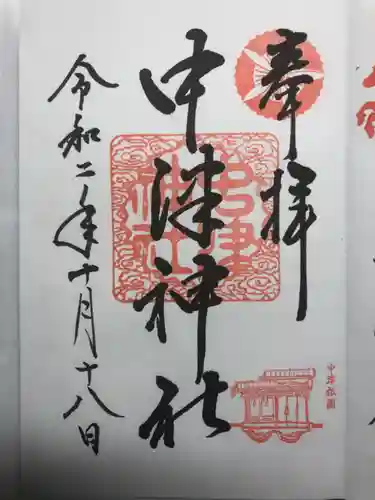 奉拝
中津神社
中津神社
中津祇園
令和二年十月十八日